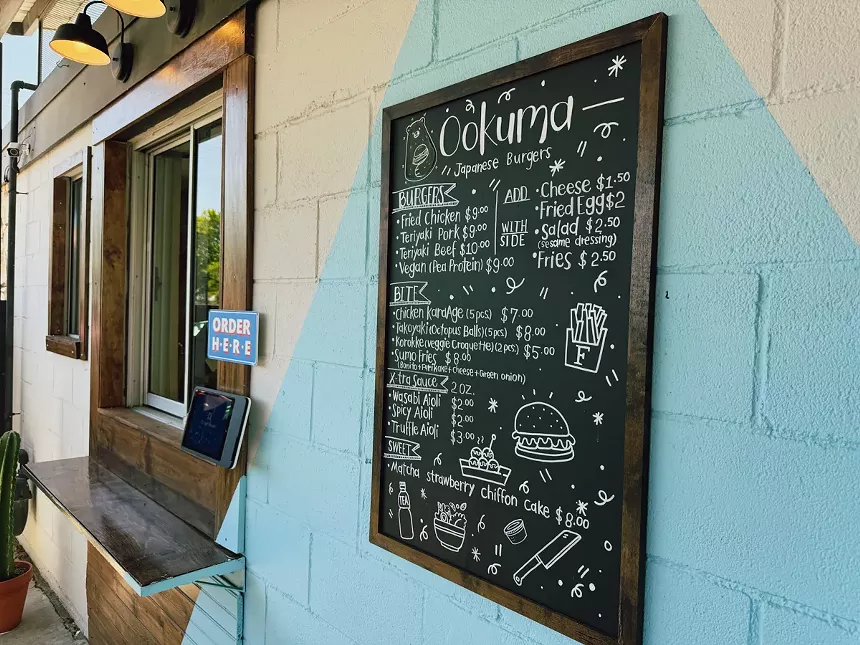 Ookuma
Japanese Burgers
BURGERS
• Fried Chicken $9.00
• Teriyaki Pork $9.00
• Teriyaki Beef $10.00
• Vegan (Pea Protein) $9.00
ADD
WITH
SIDE
• Cheese $1.50
• Fried Egg $2
• Salad $2.50
(sesame dressing)
• Fries $2.50
BITE
• Chicken KaraAge (5 pcs.) $7.00
• Takoyaki (Octopus Balls) (5 pcs.) $8.00
• Korokke (veggie Croquette) (2 pcs.) $5.00
• Sumo Fries $8.00
(Bonito + Furikake + cheese + Green onion)
X-tra Sauce 2 oz.
• Wasabi Aioli $2.00
• Spicy Aioli $2.00
• Truffle Aioli $3.00
SWEET
• Matcha strawberry chiffon cake $8.00
F
TEA
ORDER
H·E·R·E